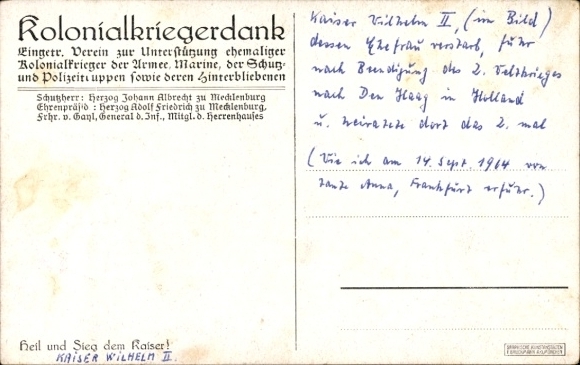 Kolonialkriegerdank
Eingetr. Verein zur Unterstützung ehemaliger
Kolonialkrieger der Armee, Marine, der Schutz-
und Polizeitruppen sowie deren Hinterbliebenen
Schutzherr: Herzog Johann Albrecht zu Mecklenburg
Ehrenpräsid: Herzog Adolf Friedrich zu Mecklenburg,
Frhr. v. Gayl, General d. Inf., Mitgl. d. Herrenhauses
Heil und Sieg dem Kaiser!
KAISER WILHELM II.
Kaiser Vilhelm II, (im Bild)
dessen Ehefrau verstarb, fuhr
nach Beendigung des 2. Veltkrieges
nach Den Haag in Holland
u. heiratete dort das 2. mal
(Vie ich am 14. Sept. 1964 von
Tante Anna, Frankfurt erfuhr.)